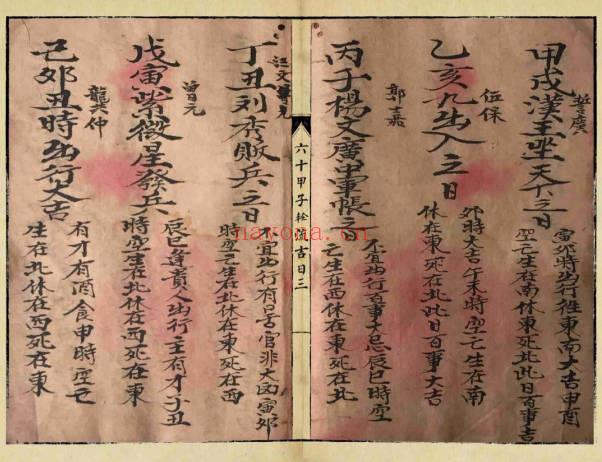 甲戌漢王坐天下之日
寅卯時出行往東南大吉申酉
空亡生在南休東死北此日百事吉
乙亥九出入之日
伍保
卯時大吉午未時空亡生在南
休在東死在北此日百事大吉
丙子楊文廣中軍帳
郭嘉
不宜出行百事大忌辰巳時空
亡生在西休在東死在北
六十甲子輪流吉日三
丁丑刘秀販兵之日
汪文
不宜出行有口舌官非大凶寅卯
時空亡生在北休在東死在西
戊寅紫微星發兵
辰巳逢貴人出行主有才子丑
時空亡生在北休在西死在東
己卯丑時出行大吉
仲
有才有酒食申時空亡
生在北休在西死在東
nayona.cn